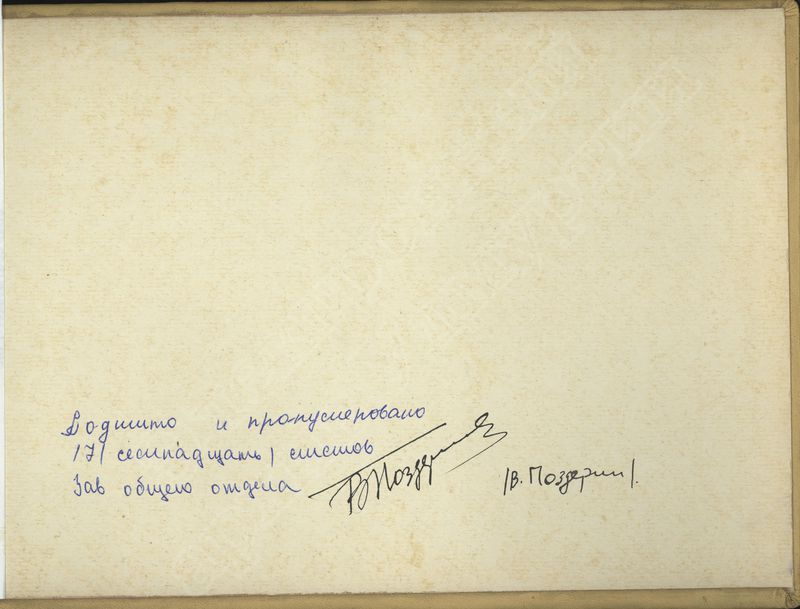 Подшито и пронумеровано
17/ семнадцать/ листов
Зав общего отдела
/В. Поздерин/.